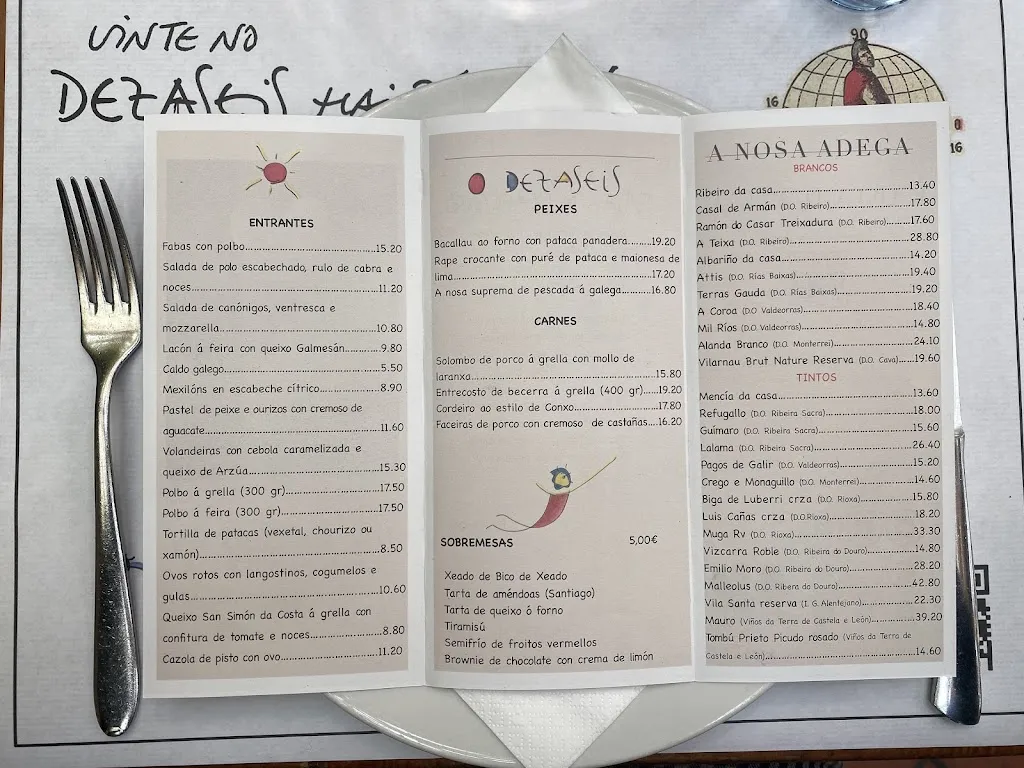 VINTE NO
DEZASEIS
90
16
16
ENTRANTES
Fabas con polbo......15.20
Salada de polo escabechado, rulo de cabra e
noces......11.20
Salada de canónigos, ventresca e
mozzarella......10.80
Lacón á feira con queixo Galmesán......9.80
Caldo galego......5.50
Mexilóns en escabeche cítrico......8.90
Pastel de peixe e ourizos con cremoso de
aguacate......11.60
Volandeiras con cebola caramelizada e
queixo de Arzúa......15.30
Polbo á grella (300 gr)......17.50
Polbo á feira (300 gr)......17.50
Tortilla de patacas (vexetal, chourizo ou
xamón)......8.50
Ovos rotos con langostinos, cogumelos e
gulas......10.60
Queixo San Simón da Costa á grella con
confitura de tomate e noces......8.80
Cazola de pisto con ovo......11.20
O DEZASEIS
PEIXES
Bacallau ao forno con pataca panadera......19.20
Rape crocante con puré de pataca e maionesa de
lima......17.20
A nosa suprema de pescada á galega......16.80
CARNES
Solombo de porco á grella con mollo de
laranxa......15.80
Entrecosto de becerra á grella (400 gr)......19.20
Cordeiro ao estilo de Conxo......17.80
Faceiras de porco con cremoso de castañas......16.20
SOBREMESAS 5,00€
Xeado de Bico de Xeado
Tarta de améndoas (Santiago)
Tarta de queixo ó forno
Tiramisú
Semifrío de froitos vermellos
Brownie de chocolate con crema de limón
A NOSA ADEGA
BRANCOS
Ribeiro da casa......13.40
Casal de Armán (D.O. Ribeiro)......17.80
Ramón do Casar Treixadura (D.O. Ribeiro)......17.60
A Teixa (D.O. Ribeiro)......28.80
Albariño da casa......14.20
Attis (D.O. Rías Baixas)......19.40
Terras Gauda (D.O. Rías Baixas)......19.20
A Coroa (D.O Valdeorras)......18.40
Mil Ríos (D.O. Valdeorras)......14.80
Alanda Branco (D.O. Monterrei)......24.10
Vilarnau Brut Nature Reserva (D.O. Cava)......19.60
TINTOS
Mencía da casa......13.60
Refugallo (D.O. Ribeira Sacra)......18.00
Guímaro (D.O. Ribeira Sacra)......15.60
Lalama (D.O. Ribeira Sacra)......26.40
Pagos de Galir (D.O. Valdeorras)......15.20
Crego e Monaguillo (D.O. Monterrei)......14.60
Biga de Luberri crza (D.O. Rioxa)......15.80
Luis Cañas crza (D.O.Rioxa)......18.20
Muga Rv (D.O. Rioxa)......33.30
Vizcarra Roble (D.O. Ribeira do Douro)......14.80
Emilio Moro (D.O. Ribeira do Douro)......28.20
Malleolus (D.O. Ribera do Douro)......42.80
Vila Santa reserva (I. G. Alentejano)......22.30
Mauro (Viños da Terra de Castela e León)......39.20
Tombú Prieto Picudo rosado (Viños da Terra de
Castela e León)......14.60